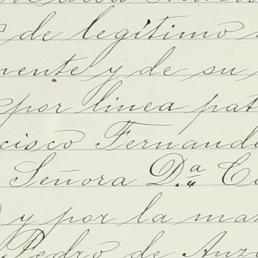 de legitimo
mente y de su
por linea pat
cisco Fernand
Señora D.ª C
y por la ma
Pedro de Anzo